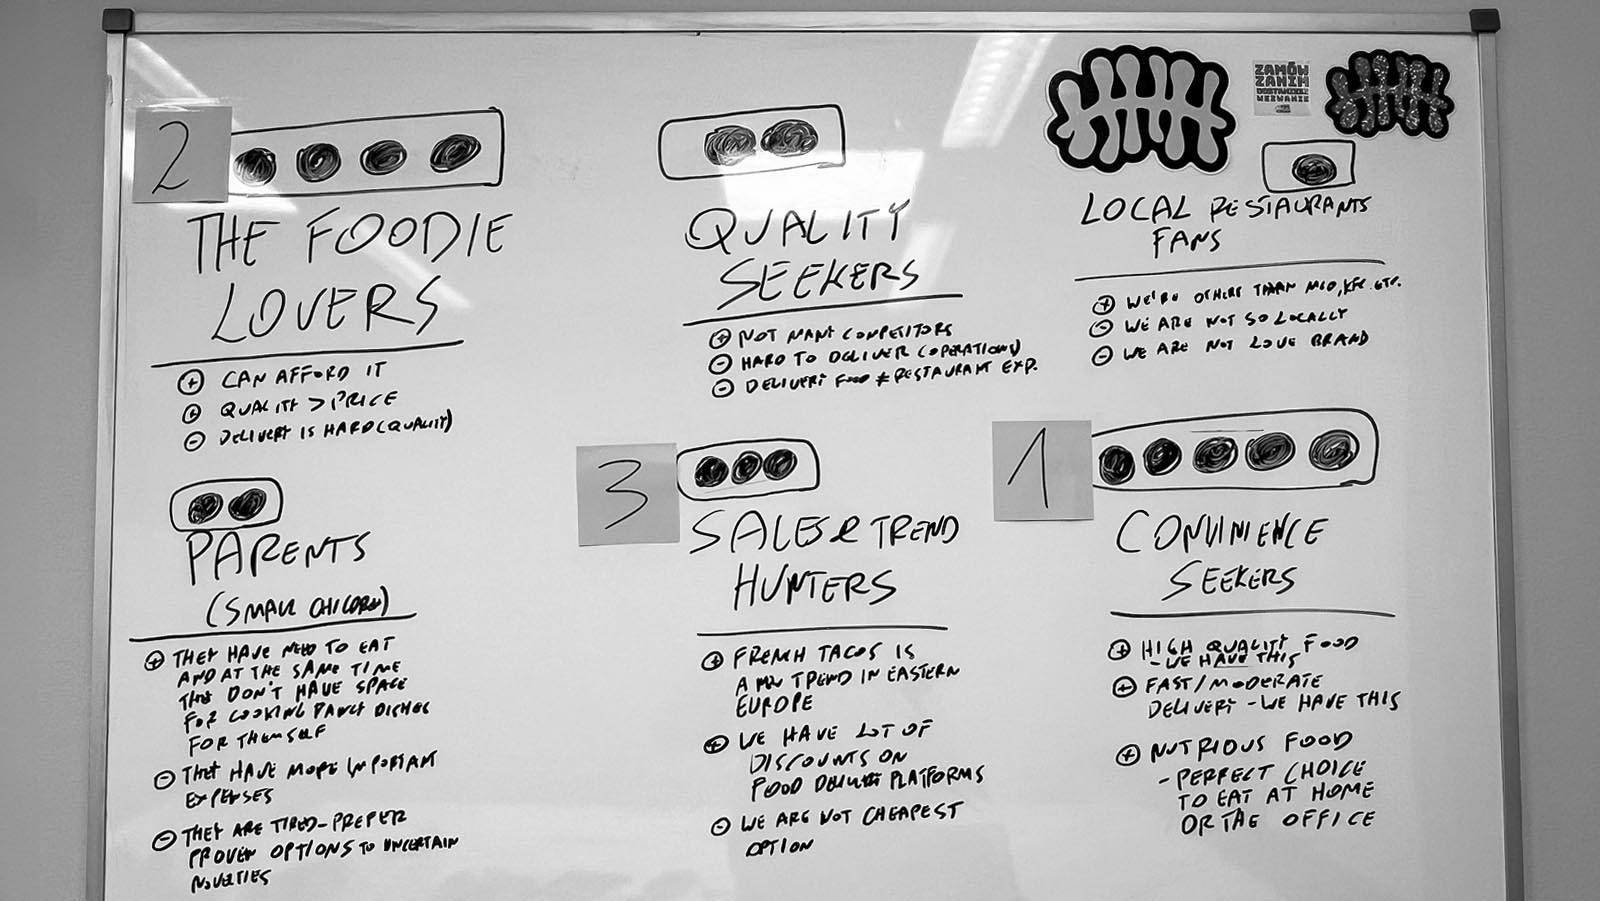 2
THE FOODIE
LOVERS
+ CAN AFFORD IT
+ QUALITY > PRICE
- DELIVERY IS HARD (QUALITY)
QUALITY
SEEKERS
+ NOT MANY COMPETITORS
- HARD TO DELIVER (OPERATIONS)
- DELIVERY FOOD ≠ RESTAURANT EXP.
ZAMÓW
ZANIM
DOSTANIESZ
WEZWANIE
LOCAL RESTAURANTS
FANS
+ WE'RE OTHERS THAN MCD, KFC ETC.
- WE ARE NOT SO LOCALLY
- WE ARE NOT LOVE BRAND
PARENTS
(SMALL CHILDREN)
+ THEY HAVE NEED TO EAT
AND AT THE SAME TIME
THEY DON'T HAVE SPACE
FOR COOKING FANCY DISHES
FOR THEMSELF
- THEY HAVE MORE IMPORTANT
EXPENSES
- THEY ARE TIRED - PREFER
PROVEN OPTIONS TO UNCERTAIN
NOVELTIES
3
SALES & TREND
HUNTERS
+ FRENCH TACOS IS
A NEW TREND IN EASTERN
EUROPE
+ WE HAVE LOT OF
DISCOUNTS ON
FOOD DELIVERY PLATFORMS
- WE ARE NOT CHEAPEST
OPTION
1
CONVINIENCE
SEEKERS
+ HIGH QUALITY FOOD
- WE HAVE THIS
+ FAST/MODERATE
DELIVERY - WE HAVE THIS
+ NUTRIOUS FOOD
- PERFECT CHOICE
TO EAT AT HOME
OR THE OFFICE